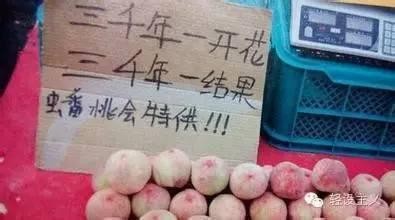 三千年一开花
三千年一结果
蟠桃会特供!!!
轻设主义